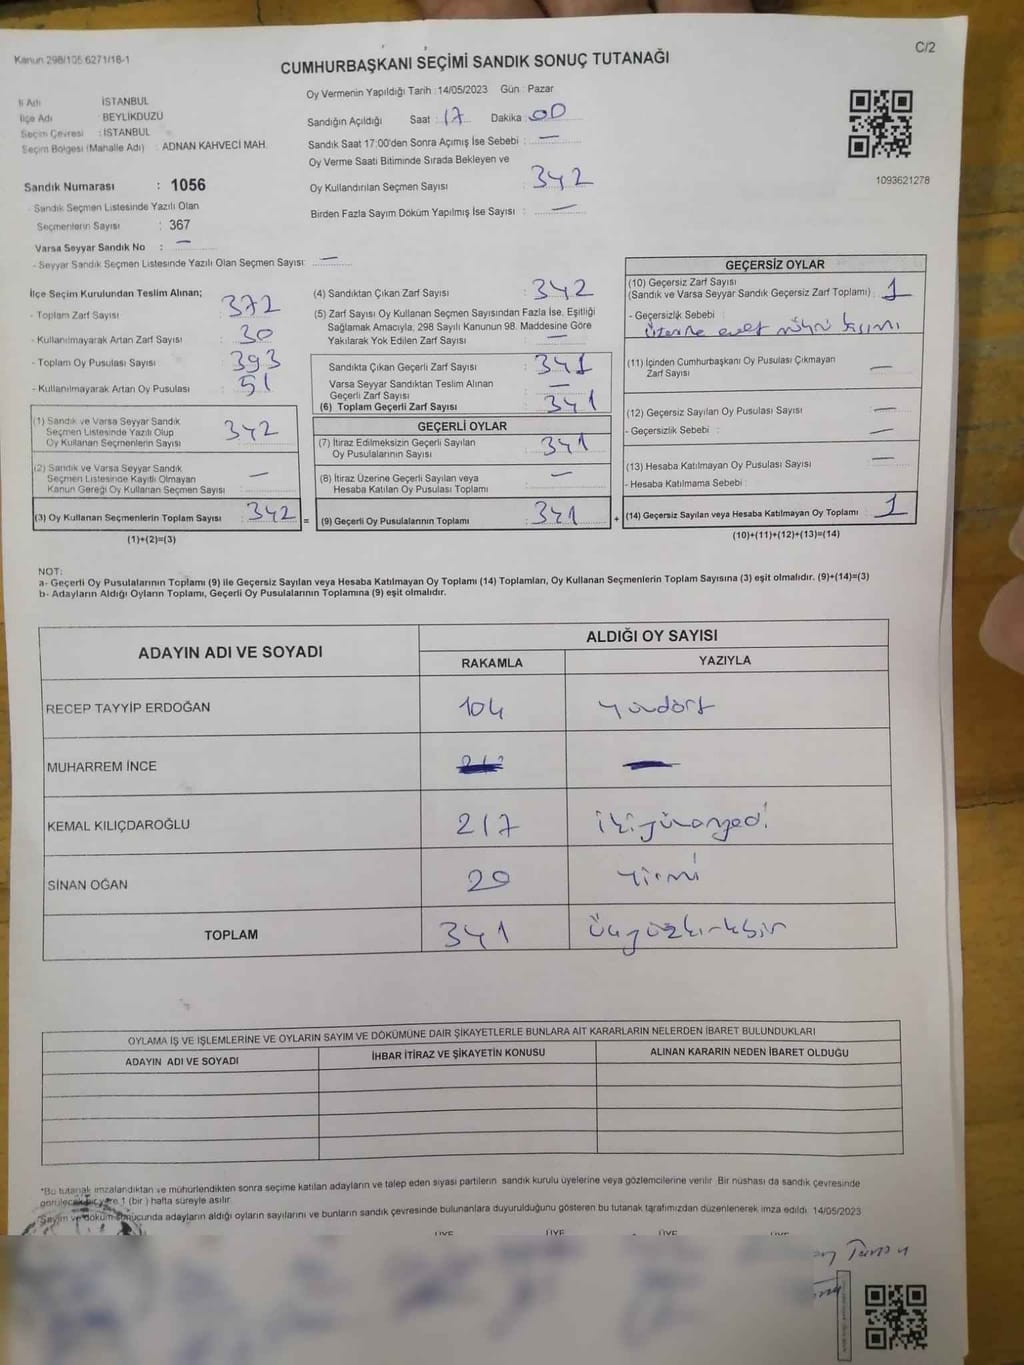 Kanun 298/105 6271/18-1
C/2
CUMHURBAŞKANI SEÇİMİ SANDIK SONUÇ TUTANAĞI
İl Adı İSTANBUL
İlçe Adı : BEYLİKDÜZÜ
Seçim Çevresi : İSTANBUL
Seçim Bölgesi (Mahalle Adı) : ADNAN KAHVECİ MAH.
Oy Vermenin Yapıldığı Tarih : 14/05/2023 Gün : Pazar
Sandığın Açıldığı Saat : 17 Dakika : 00
Sandık Saat 17:00'den Sonra Açımış İse Sebebi : —
Oy Verme Saati Bitiminde Sırada Bekleyen ve
Oy Kullandırılan Seçmen Sayısı : 342
Birden Fazla Sayım Döküm Yapılmış İse Sayısı : —
1093621278
Sandık Numarası : 1056
- Sandık Seçmen Listesinde Yazılı Olan
Seçmenlerin Sayısı : 367
Varsa Seyyar Sandık No : —
- Seyyar Sandık Seçmen Listesinde Yazılı Olan Seçmen Sayısı: —
İlçe Seçim Kurulundan Teslim Alınan;
- Toplam Zarf Sayısı : 372
- Kullanılmayarak Artan Zarf Sayısı : 30
- Toplam Oy Pusulası Sayısı : 393
- Kullanılmayarak Artan Oy Pusulası : 51
(1) Sandık ve Varsa Seyyar Sandık
Seçmen Listesinde Yazılı Olup
Oy Kullanan Seçmenlerin Sayısı : 342
(2) Sandık ve Varsa Seyyar Sandık
Seçmen Listesinde Kayıtlı Olmayan
Kanun Gereği Oy Kullanan Seçmen Sayısı : —
(3) Oy Kullanan Seçmenlerin Toplam Sayısı : 342 =
(1)+(2)=(3)
(4) Sandıktan Çıkan Zarf Sayısı : 342
(5) Zarf Sayısı Oy Kullanan Seçmen Sayısından Fazla İse, Eşitliği
Sağlamak Amacıyla; 298 Sayılı Kanunun 98. Maddesine Göre
Yakılarak Yok Edilen Zarf Sayısı : —
Sandıkta Çıkan Geçerli Zarf Sayısı : 341
Varsa Seyyar Sandıktan Teslim Alınan
Geçerli Zarf Sayısı : —
(6) Toplam Geçerli Zarf Sayısı : 341
GEÇERLİ OYLAR
(7) İtiraz Edilmeksizin Geçerli Sayılan
Oy Pusulalarının Sayısı : 341
(8) İtiraz Üzerine Geçerli Sayılan veya
Hesaba Katılan Oy Pusulası Toplamı : —
(9) Geçerli Oy Pusulalarının Toplamı : 341 +
GEÇERSİZ OYLAR
(10) Geçersiz Zarf Sayısı
(Sandık ve Varsa Seyyar Sandık Geçersiz Zarf Toplamı) : 1
- Geçersizlik Sebebi :
üzerine evet mührü
(11) İçinden Cumhurbaşkanı Oy Pusulası Çıkmayan
Zarf Sayısı : —
(12) Geçersiz Sayılan Oy Pusulası Sayısı : —
- Geçersizlik Sebebi : —
(13) Hesaba Katılmayan Oy Pusulası Sayısı : —
- Hesaba Katılmama Sebebi :
(14) Geçersiz Sayılan veya Hesaba Katılmayan Oy Toplamı : 1
(10)+(11)+(12)+(13)=(14)
NOT:
a- Geçerli Oy Pusulalarının Toplamı (9) ile Geçersiz Sayılan veya Hesaba Katılmayan Oy Toplamı (14) Toplamları, Oy Kullanan Seçmenlerin Toplam Sayısına (3) eşit olmalıdır. (9)+(14)=(3)
b- Adayların Aldığı Oyların Toplamı, Geçerli Oy Pusulalarının Toplamına (9) eşit olmalıdır.
ADAYIN ADI VE SOYADI ALDIĞI OY SAYISI
RAKAMLA YAZIYLA
RECEP TAYYİP ERDOĞAN 104 Yüzdört
MUHARREM İNCE —
KEMAL KILIÇDAROĞLU 217 ikiyüzonyedi
SİNAN OĞAN 20 Yirmi
TOPLAM 341 üçyüzkırkbir
OYLAMA İŞ VE İŞLEMLERİNE VE OYLARIN SAYIM VE DÖKÜMÜNE DAİR ŞİKAYETLERLE BUNLARA AİT KARARLARIN NELERDEN İBARET BULUNDUKLARI
ADAYIN ADI VE SOYADI İHBAR İTİRAZ VE ŞİKAYETİN KONUSU ALINAN KARARIN NEDEN İBARET OLDUĞU
*Bu tutanak imzalandıktan ve mühürlendikten sonra seçime katılan adayların ve talep eden siyasi partilerin sandık kurulu üyelerine veya gözlemcilerine verilir. Bir nüshası da sandık çevresinde
görülecek bir yere 1 (bir) hafta süreyle asılır.
*Sayım ve döküm sonucunda adayların aldığı oyların sayılarını ve bunların sandık çevresinde bulunanlara duyurulduğunu gösteren bu tutanak tarafımızdan düzenlenerek imza edildi. 14/05/2023
ÜYE ÜYE ÜYE